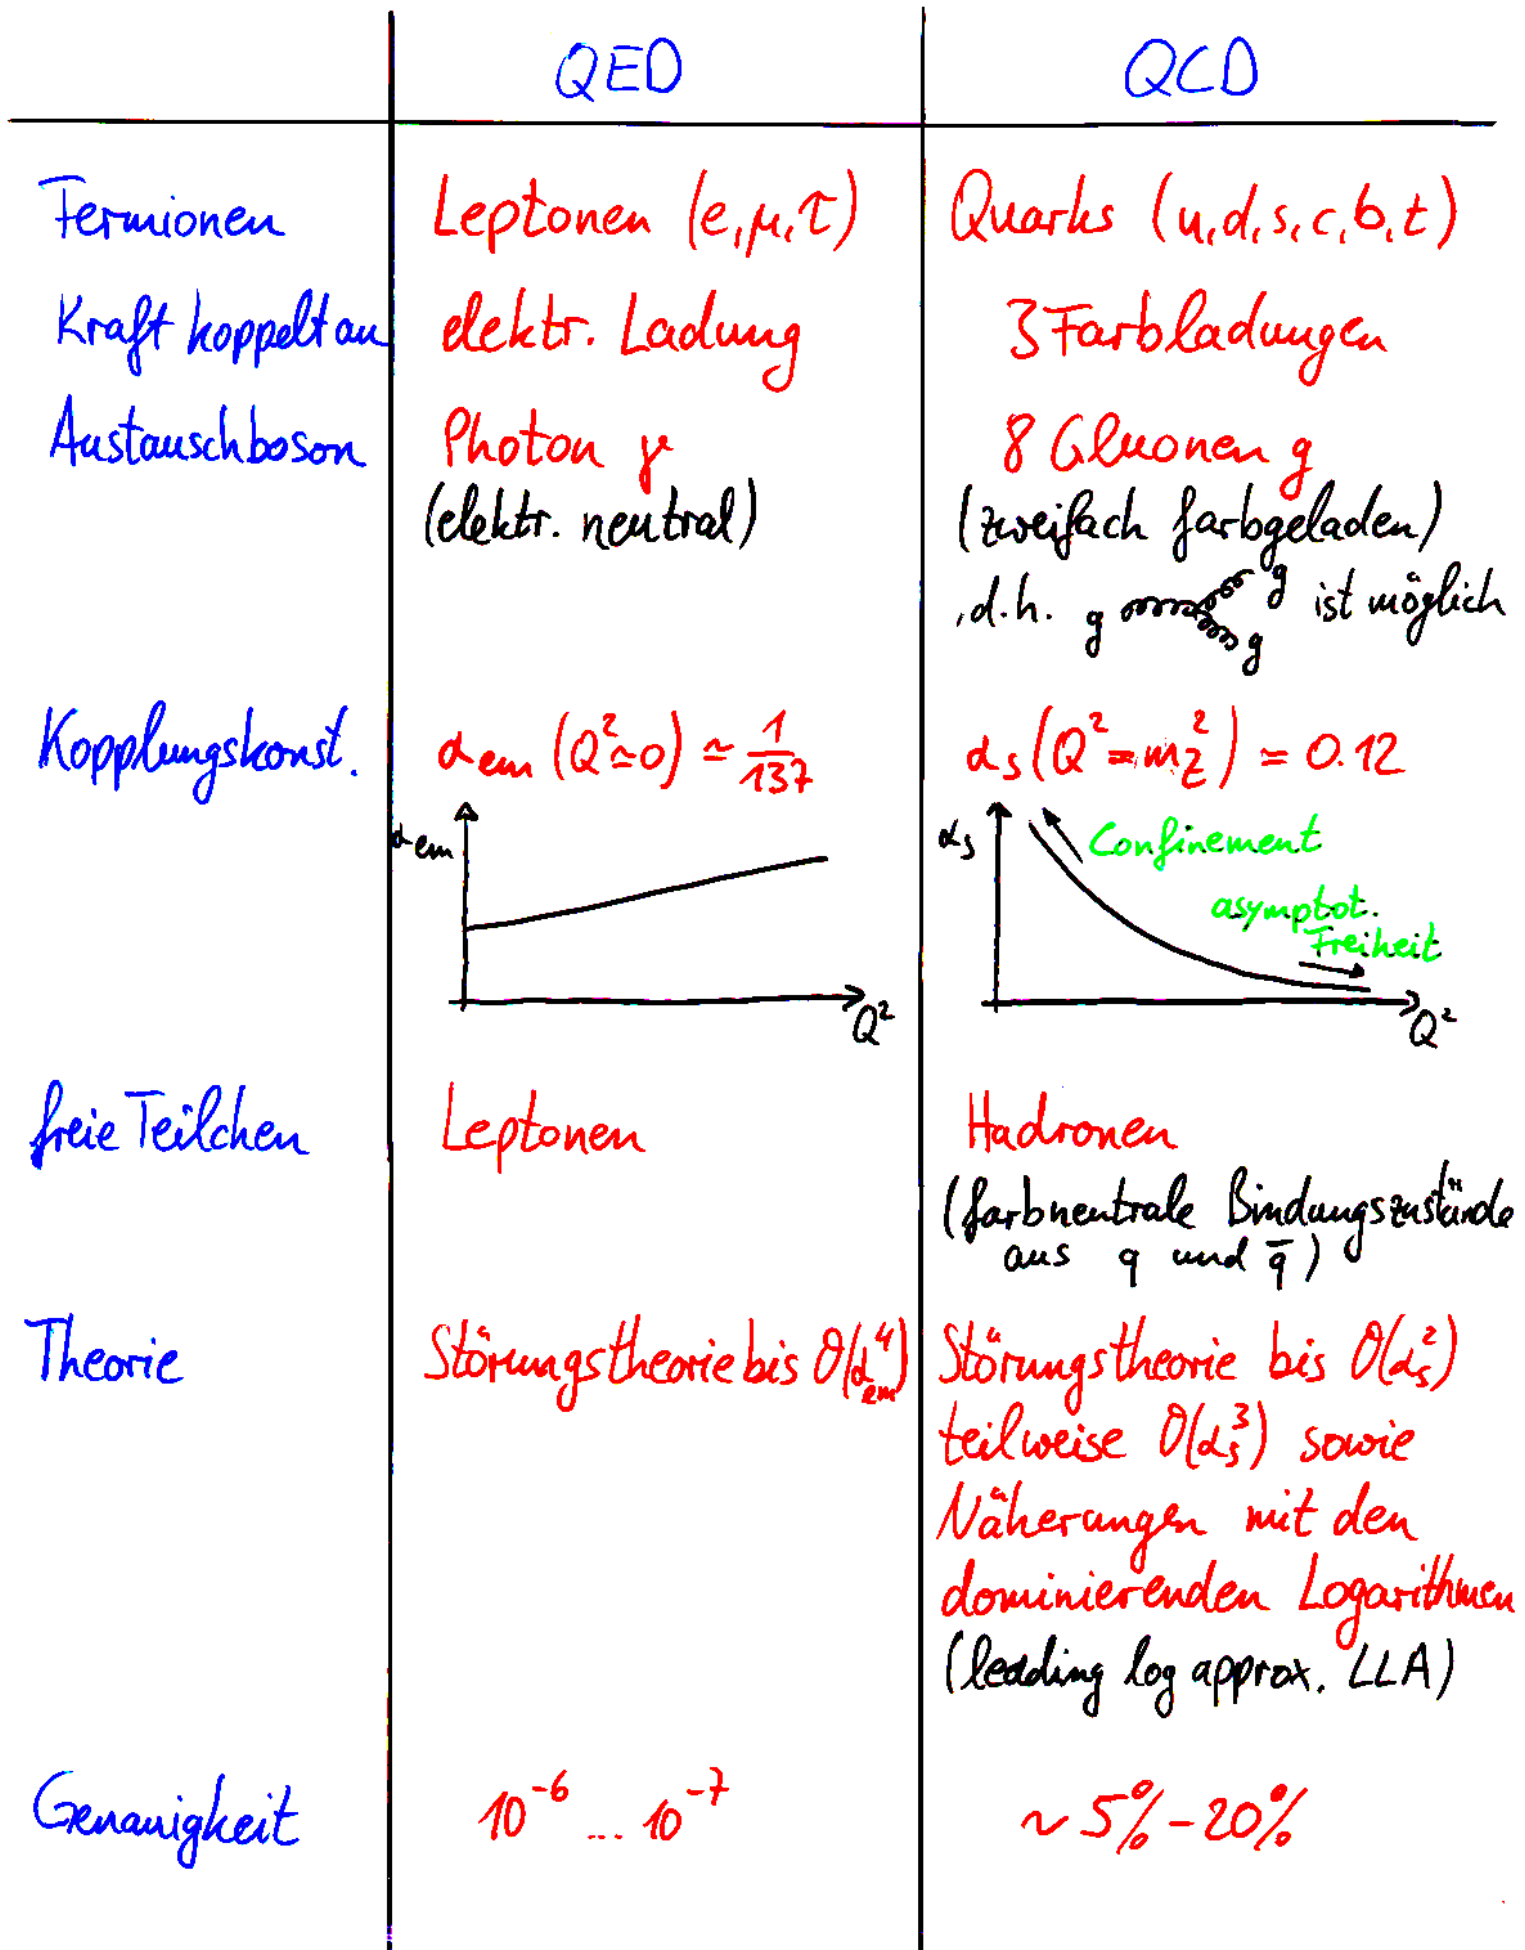 QED QCD
Fermionen Leptonen (e, μ, τ) Quarks (u, d, s, c, b, t)
Kraft koppelt an elektr. Ladung 3 Farbladungen
Austauschboson Photon γ 8 Gluonen g
(elektr. neutral) (zweifach farbgeladen)
, d.h. g g g ist möglich
Kopplungskonst. α_em (Q² ≃ 0) ≃ 1/137 α_s (Q² = m_Z²) ≃ 0.12
α_em α_s Confinement
asymptot.
Freiheit
Q² Q²
freie Teilchen Leptonen Hadronen
(farbneutrale Bindungszustände
aus q und q̄)
Theorie Störungstheorie bis O(α_em⁴) Störungstheorie bis O(α_s²)
teilweise O(α_s³) sowie
Näherungen mit den
dominierenden Logarithmen
(leading log approx. LLA)
Genauigkeit 10⁻⁶ ... 10⁻⁷ ~ 5% - 20%